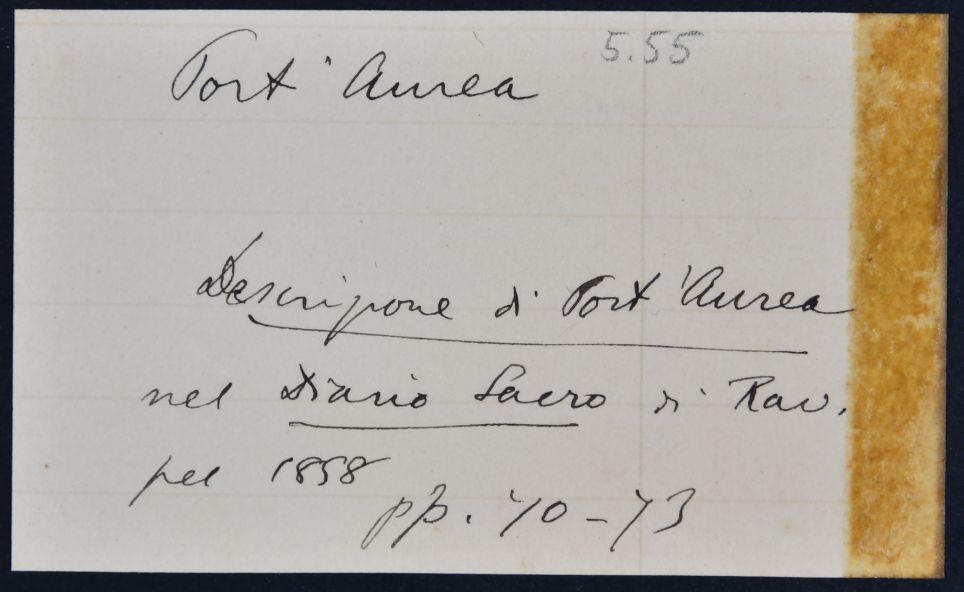 5.55
Port' Aurea
Descrizione di Port'Aurea
nel Diario Sacro di Rav.
pel 1858
pp. 70-73